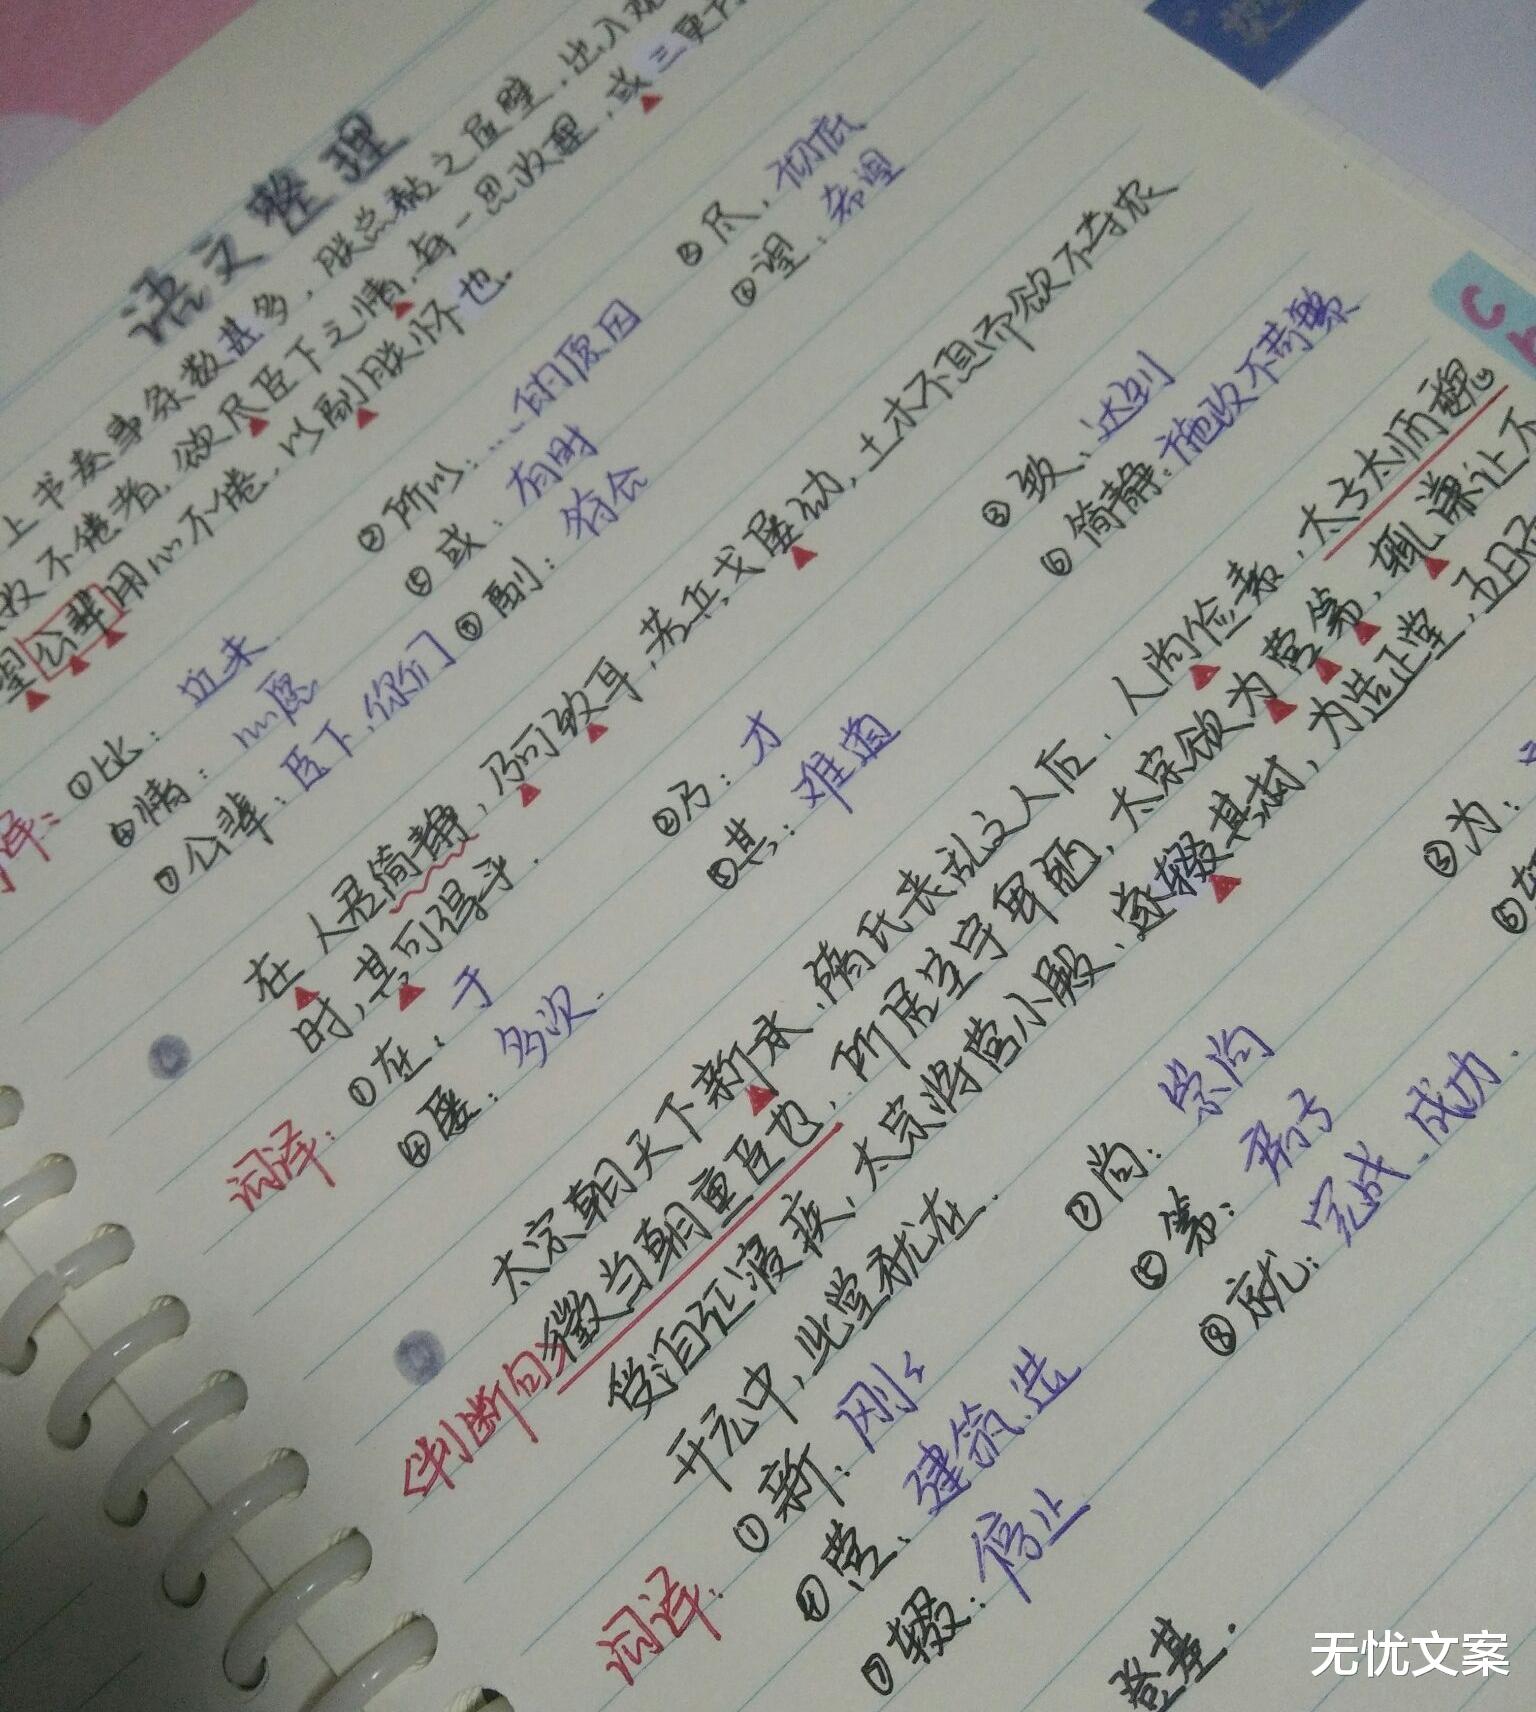 语文整理
上书奏事条数甚多，朕总黏之屋壁，出入观
不倦者，欲尽臣下之情，每一思政理，或三更方
望公辈用心不倦，以副朕怀也。
①比：近来
②所以：…的原因
③尽，彻底
④望：希望
⑤或：有时
⑥情：心愿
⑦公辈：臣下，你们
⑧副：符合
在人君简静，乃可致耳，若兵戈屡动，土木不息而欲不夺农
时，其可得乎。
词译：①在：于
②乃：才
③致、达到
④屡：多次
⑤其：难道
⑥简静：施政不苛繁
太宗朝天下新承隋氏丧乱之人后，人尚俭素，太子太师魏
〈判断句 徵当朝重臣也，所居室宇卑陋，太宗欲为营第，辄谦让不
受。洎征寝疾，太宗将营小殿、遂辍其材，为造正堂，五日而
开元中，此堂犹在。
词译：①新：刚刚
②尚：崇尚
③为：
④营、建筑、造
⑤第：府子
⑦辍：停止
⑧就：完成、成功
登基.
无忧文案